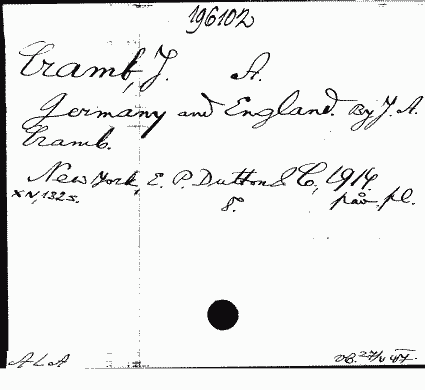 196102
Cramb, J. A.
Germany and England. By J. A.
Cramb.
New York, E. P. Dutton & C., 1914.
XIV, 132 s. 8. pär. pl.
ALA